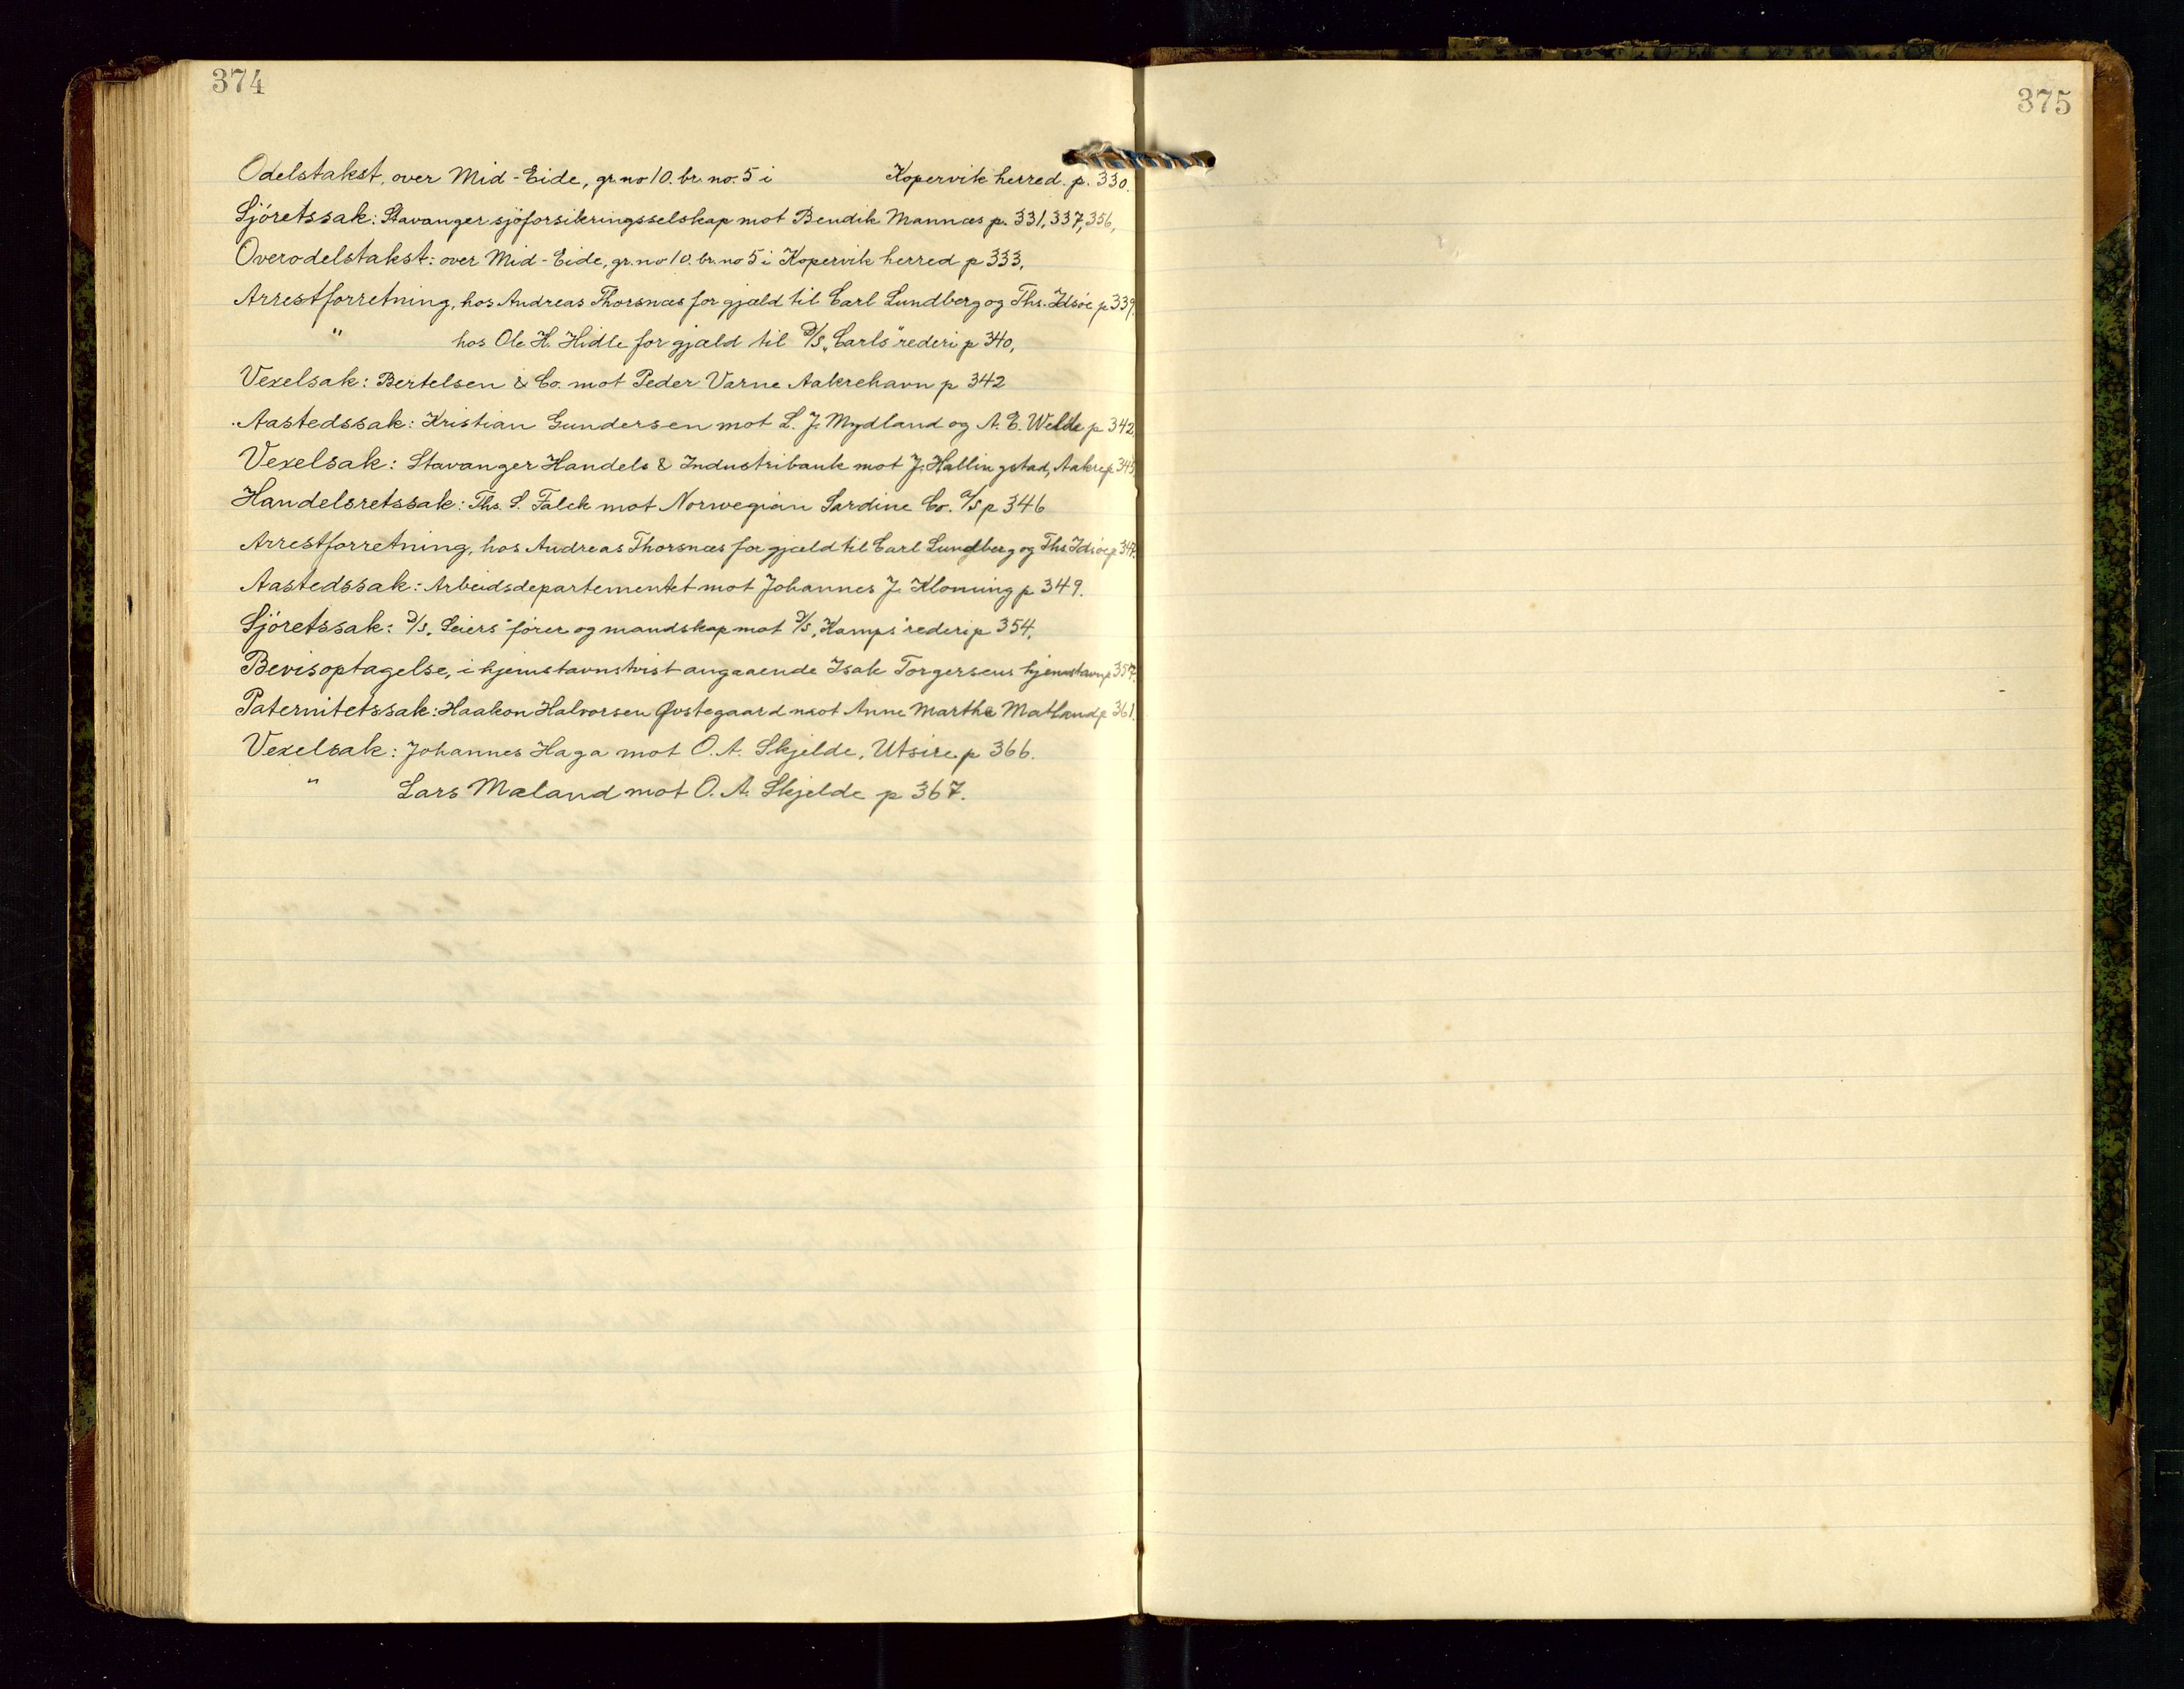 374
Odelstakst, over Mid-Eide, gr. no 10. br. no. 5 i Kopervik herred. p. 330.
Sjøretssak: Stavanger sjøforsikringsselskap mot Bendik Mannæs p. 331, 337, 356,
Overodelstakst: over Mid-Eide, gr. no 10. br. no 5 i Kopervik herred p 333,
Arrestforretning, hos Andreas Thorsnæs for gjæld til Carl Lundberg og Ths. Idsøe p 339.
" hos Ole H. Hidle for gjæld til D/S „Carls" rederi p 340,
Vexelsak: Bertelsen & Co. mot Peder Varne Aakrehavn p 342
Aastedssak: Kristian Gundersen mot L. J. Mydland og A. E. Welde p 342
Vexelsak: Stavanger Handels & Industribank mot J. Hallingstad, Aakre p 345
Handelsretssak: Ths. S. Falck mot Norwegian Sardine Co. A/S p 346
Arrestforretning, hos Andreas Thorsnæs for gjæld til Carl Lundberg og Ths. Idsøe p 347.
Aastedssak: Arbeidsdepartementet mot Johannes J. Kloning p 349.
Sjøretssak: D/S „Seiers" fører og mandskap mot D/S „Kamps" rederi p 354.
Bevisoptagelse, i hjemstavnstvist angaaende Isak Torgersens hjemstavn p 357.
Paternitetssak: Haakon Halvorsen Østegaard mot Anne Marthe Matland p 361.
Vexelsak: Johannes Haga mot O. A. Skjelde, Utsire p 366.
" Lars Mæland mot O. A. Skjelde p 367.
375